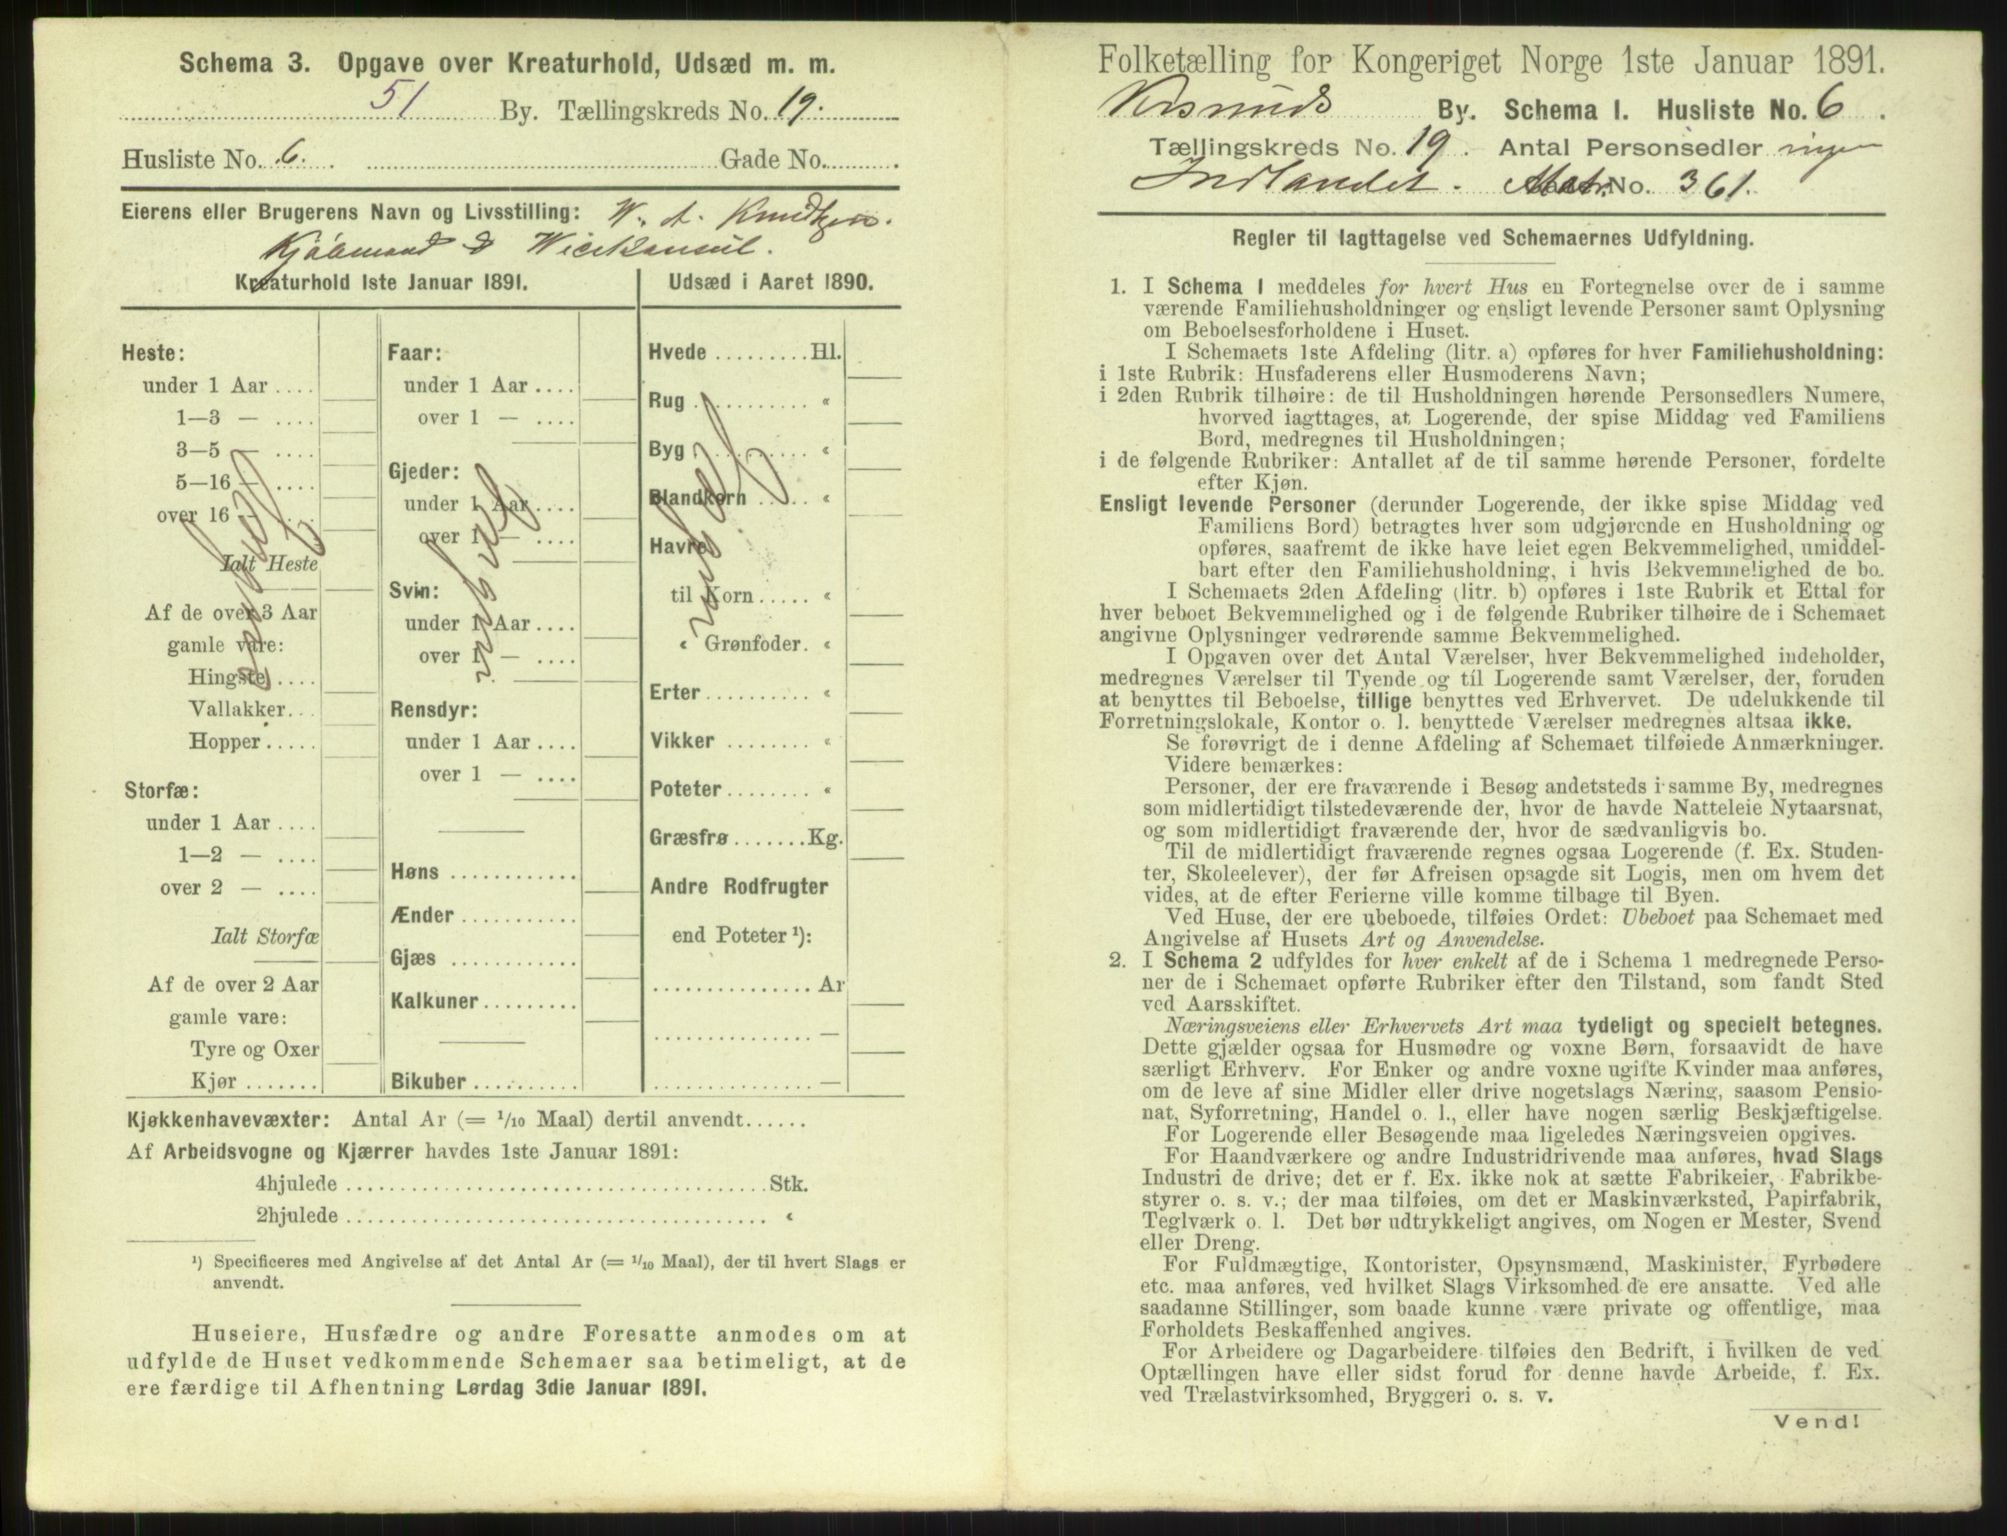 Schema 3. Opgave over Kreaturhold, Udsæd m. m.
51 By. Tællingskreds No. 19.
Husliste No. 6. Gade No.
Eierens eller Brugerens Navn og Livsstilling: W. A. Knudtzon.
Kjøbmand & Vicekonsul.
Kreaturhold 1ste Januar 1891.
Heste:
under 1 Aar
1—3 —
3—5 —
5—16 —
over 16 -
Ialt Heste
Af de over 3 Aar
gamle vare:
Hingste
Vallakker
Hopper
Storfæ:
under 1 Aar
1—2 —
over 2 —
Ialt Storfæ
Af de over 2 Aar
gamle vare:
Tyre og Oxer
Kjør
Faar:
under 1 Aar
over 1 —
Gjeder:
under 1 Aar
over 1 —
Svin:
under 1 Aar
over 1 —
Rensdyr:
under 1 Aar
over 1 —
Høns
Ænder
Gjæs
Kalkuner
Bikuber
Udsæd i Aaret 1890.
Hvede Hl.
Rug «
Byg «
Blandkorn «
Havre
til Korn «
« Grønfoder «
Erter «
Vikker «
Poteter «
Græsfrø Kg.
Andre Rodfrugter
end Poteter ¹):
Ar
—
—
Kjøkkenhavevæxter: Antal Ar (= 1/10 Maal) dertil anvendt......
Af Arbeidsvogne og Kjærrer havdes 1ste Januar 1891:
4hjulede Stk.
2hjulede «
¹) Specificeres med Angivelse af det Antal Ar (= 1/10 Maal), der til hvert Slags er
anvendt.
Huseiere, Husfædre og andre Foresatte anmodes om at
udfylde de Huset vedkommende Schemaer saa betimeligt, at de
ere færdige til Afhentning Lørdag 3die Januar 1891.
Folketælling for Kongeriget Norge 1ste Januar 1891.
Krsunds By. Schema I. Husliste No. 6.
Tællingskreds No. 19. Antal Personsedler ingen
Indlandet. Matr. No. 361.
Regler til Iagttagelse ved Schemaernes Udfyldning.
1. I Schema 1 meddeles for hvert Hus en Fortegnelse over de i samme
værende Familiehusholdninger og ensligt levende Personer samt Oplysning
om Beboelsesforholdene i Huset.
I Schemaets 1ste Afdeling (litr. a) opføres for hver Familiehusholdning:
i 1ste Rubrik: Husfaderens eller Husmoderens Navn;
i 2den Rubrik tilhøire: de til Husholdningen hørende Personsedlers Numere,
hvorved iagttages, at Logerende, der spise Middag ved Familiens
Bord, medregnes til Husholdningen;
i de følgende Rubriker: Antallet af de til samme hørende Personer, fordelte
efter Kjøn.
Ensligt levende Personer (derunder Logerende, der ikke spise Middag ved
Familiens Bord) betragtes hver som udgjørende en Husholdning og
opføres, saafremt de ikke have leiet egen Bekvemmelighed, umiddel-
bart efter den Familiehusholdning, i hvis Bekvemmelighed de bo.
I Schemaets 2den Afdeling (litr. b) opføres i 1ste Rubrik et Ettal for
hver beboet Bekvemmelighed og i de følgende Rubriker tilhøire de i Schemaet
angivne Oplysninger vedrørende samme Bekvemmelighed.
I Opgaven over det Antal Værelser, hver Bekvemmelighed indeholder,
medregnes Værelser til Tyende og til Logerende samt Værelser, der, foruden
at benyttes til Beboelse, tillige benyttes ved Erhvervet. De udelukkende til
Forretningslokale, Kontor o. l. benyttede Værelser medregnes altsaa ikke.
Se forøvrigt de i denne Afdeling af Schemaet tilføiede Anmærkninger.
Videre bemærkes:
Personer, der ere fraværende i Besøg andetsteds i samme By, medregnes
som midlertidigt tilstedeværende der, hvor de havde Natteleie Nytaarsnat,
og som midlertidigt fraværende der, hvor de sædvanligvis bo.
Til de midlertidigt fraværende regnes ogsaa Logerende (f. Ex. Studen-
ter, Skoleelever), der før Afreisen opsagde sit Logis, men om hvem det
vides, at de efter Ferierne ville komme tilbage til Byen.
Ved Huse, der ere ubeboede, tilføies Ordet: Ubeboet paa Schemaet med
Angivelse af Husets Art og Anvendelse.
2. I Schema 2 udfyldes for hver enkelt af de i Schema 1 medregnede Perso-
ner de i Schemaet opførte Rubriker efter den Tilstand, som fandt Sted
ved Aarsskiftet.
Næringsveiens eller Erhvervets Art maa tydeligt og specielt betegnes.
Dette gjælder ogsaa for Husmødre og voxne Børn, forsaavidt de have
særligt Erhverv. For Enker og andre voxne ugifte Kvinder maa anføres,
om de leve af sine Midler eller drive nogetslags Næring, saasom Pensio-
nat, Syforretning, Handel o. l., eller have nogen særlig Beskjæftigelse.
For Logerende eller Besøgende maa ligeledes Næringsveien opgives.
For Haandværkere og andre Industridrivende maa anføres, hvad Slags
Industri de drive; det er f. Ex. ikke nok at sætte Fabrikeier, Fabrikbe-
styrer o. s. v.; der maa tilføies, om det er Maskinværksted, Papirfabrik,
Teglværk o. l. Det bør udtrykkeligt angives, om Nogen er Mester, Svend
eller Dreng.
For Fuldmægtige, Kontorister, Opsynsmænd, Maskinister, Fyrbødere
etc. maa anføres, ved hvilket Slags Virksomhed de ere ansatte. Ved alle
saadanne Stillinger, som baade kunne være private og offentlige, maa
Forholdets Beskaffenhed angives.
For Arbeidere og Dagarbeidere tilføies den Bedrift, i hvilken de ved
Optællingen have eller sidst forud for denne havde Arbeide, f. Ex.
ved Trælastvirksomhed, Bryggeri o. s. v.
Vend!